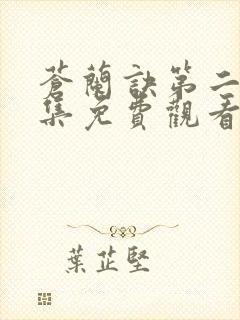 蒼蘭訣第二
集免費觀看
葉芷堅